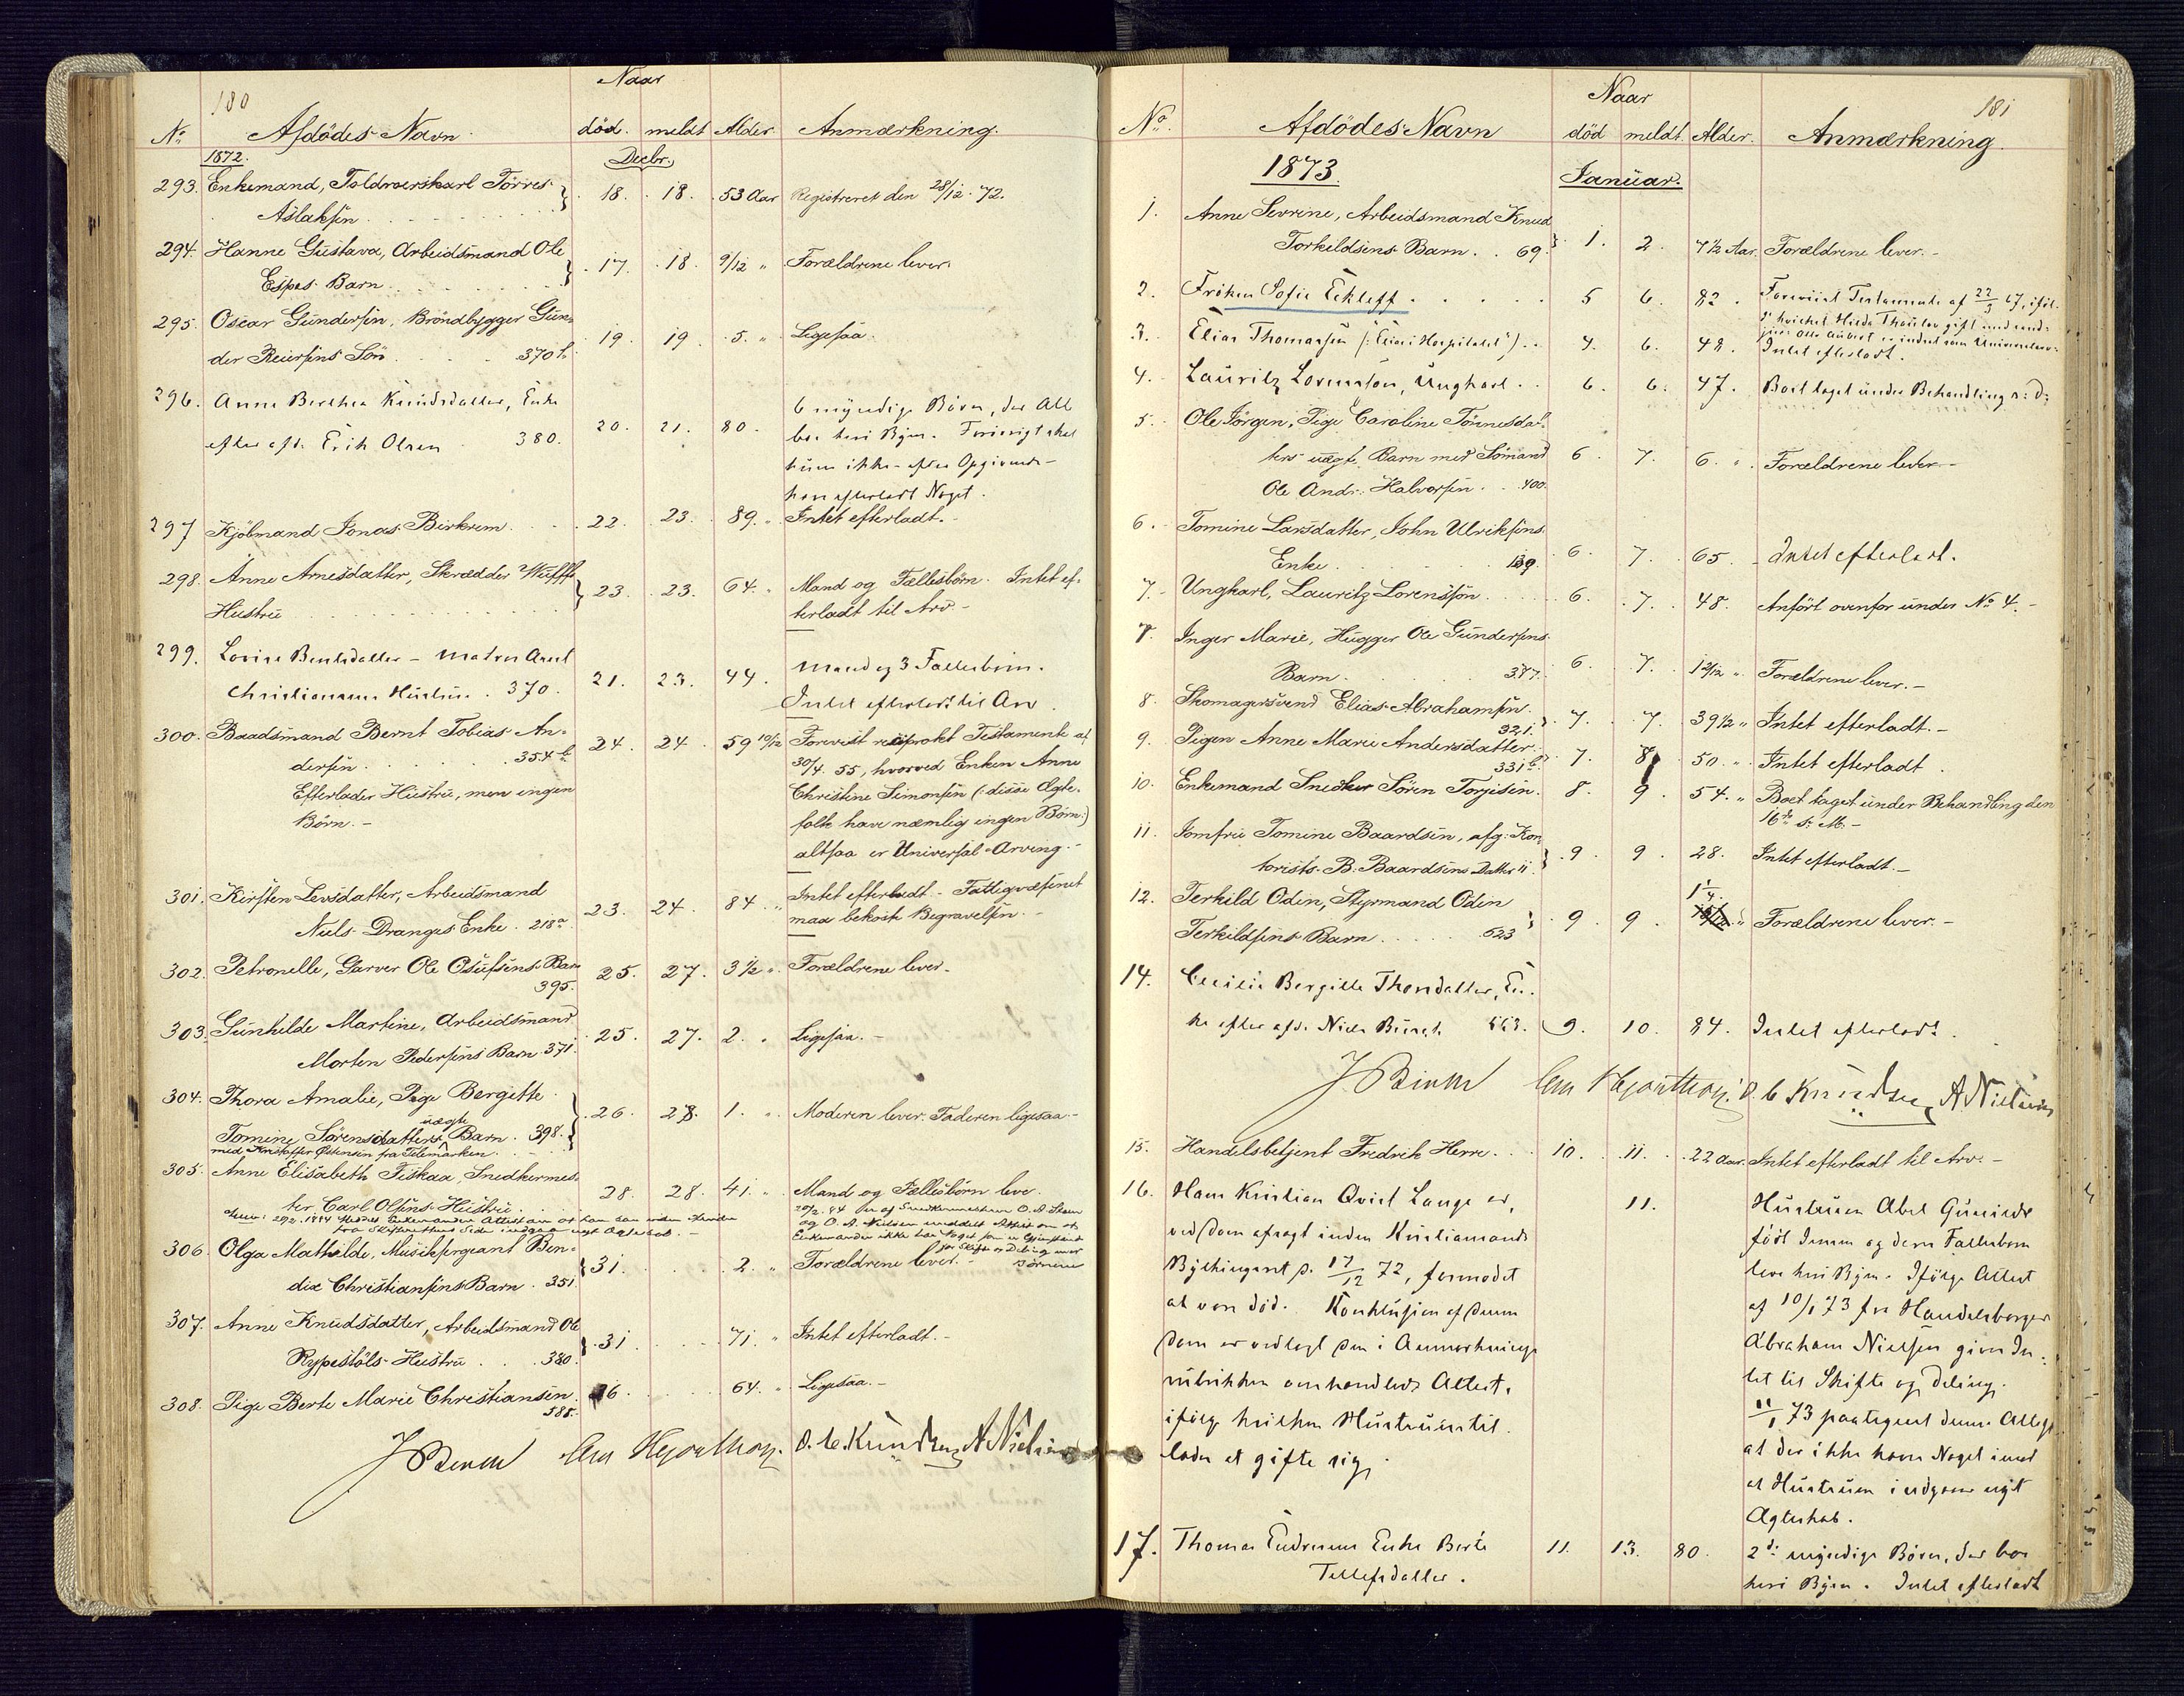 180
Naar
No. Afdödes Navn. död. meldt Alder Anmærkning.
1872. Decbr.
293. Enkemand, Toldroerskarl Törres Aslaksen 18. 18. 53 Aar Registreret den 28/12. 72.
294. Hanne Gustava, Arbeidsmand Ole
Espes Barn 17. 18. 9/12 " Forældrene lever.
295. Oscar Gundersen, Bröndbygger Gun=
der Reiersens Sön 370 b. 19. 19. 5. " Ligesaa.
296. Anne Berthea Knudsdatter, Enke
efter afd. Erik Olsen 380. 20. 21. 80.
6 myndige Börn, der Alle
bor heri Byen. Forövrigt skal
hun ikke efter Opgivende
have efterladt Noget.
297 Kjöbmand Jonas Birkrem 22. 23. 89. " Intet efterladt.
298. Anne Arnesdatter, Skrædder Wulffs
Hustru 23. 23. 64. " Mand og Fællesbörn. Intet ef=
terladt til Arv -
299. Lovise Bentsdatter - Matros Axel
Christiansens Hustru. 370. 21. 23. 44. Mand og 3 Fællesbörn.
Intet efterladt til Arv.
300. Baadsmand Bernt Tobias An=
dersen 354 b. 24. 24. 59 10/12 Forevist reciprokt Testament af
Efterlader Hustru, men ingen
Börn. -
30/4. 55, hvorved Enken Anne
Christine Simonsen (: disse Ægte=
folk have nemlig ingen Börn :)
altsaa er Universal-Arving. -
301. Kirsten Larsdatter, Arbeidsmand
Niels Dranges Enke. 218 a 23. 24. 84. " Intet efterladt - Fattigvæsenet
maa bekoste Begravelsen. -
302. Petronelle, Garver Ole Osufsens Barn
395. 25. 27. 3 1/2 " Forældrene lever.
303. Gunhilde Martine, Arbeidsmand
Morten Pedersens Barn 371. 25. 27. 2. " Ligesaa. -
304. Thora Amalie, Pige Bergitte
Tomine Sörensdatters uægte Barn. 398. 26. 28. 1. " Moderen lever. Faderen ligesaa. -
med Kristoffer Østensen fra Telemarken.
305. Anne Elisabeth Fiskaa, Snedkermes=
ter Carl Olsens Hustru 28. 28. 41. " Mand og Fællesbörn leve.
306. Olga Mathilde, Musiksergeant Ben=
dix Christiansens Barn. 351. 31. 2. " Forældrene lever. -
307. Anne Knudsdatter, Arbeidsmand Ole
Rypestöls Hustru 380. 31. 71. " Intet efterladt. -
308. Pige Berte Marie Christiansen
588. 26. 64. " Ligesaa. -
O. C. Knudsen A Nielsen
181
Naar
No. Afdödes Navn död meldt. Alder. Anmærkning.
1873. Januar.
1. Anne Sevrine, Arbeidsmand Knud
Torkildsens Barn. 69. 1. 2. 7 1/2 Aar. Forældrene lever. -
2. Fröken Sofie Eckleff 5 6. 82.
3. Elias Thomassen (: "Elias i Hospitalet") 4. 6. 48. Intet efterladt.
4. Lauritz Lorentson, Ungkarl 6. 6. 47. Boet taget under Behandling s: D:
5. Ole Jörgen, Pige Caroline Tönnesdat=
ters uægte Barn med Sömand 6. 7. 6. " Forældrene lever -
Ole Andr. Halvorsen 400.
6. Tomine Larsdatter, John Ulriksens
Enke 139. 6. 7. 65. Intet efterladt.
7. Ungkarl, Lauritz Lorensson 6. 7. 48. Anfört ovenfor under No 4. -
7. Inger Marie, Hugger Ole Gundersens
Barn 387. 6. 7. 1 2/12 " Forældrene lever. -
8. Skomagersvend Elias Abrahamsen
321. 7. 7. 39 1/2 " Intet efterladt. -
9. Pigen Anne Marie Andersdatter
331 b. 7. 8 50. " Intet efterladt.
10. Enkemand Snedker Sören Torjisen. 8. 9. 54. " Boet taget under Behandling den
16de s. M. -
11. Jomfru Tomine Baardsen, afg: Kon=
torists B. Baardsens Datter 11. 9. 9. 28. Intet efterladt. -
12. Terkild Odin, Styrmand Odin
Terkildsens Barn 623 9 9. 1 1/4 Forældrene lever. -
14. Cecilie Bergitte Thorsdatter, En=
ke efter afd. Niels Bünch. 563. 9. 10. 84. Intet efterladt.
O. C. Knudsen A Nielsen
15. Handelsbetjent Fredrik Herre 10. 11. 22 Aar. Intet efterladt til Arv. -
16. Hans Kristian Qvist Lange er,
ved Dom afsagt inden Kristiansands
Bythingsret d. 17/12 72, formodet
at være död. Konklusion af denne
Dom er vedlagt den i Anmærknings
rubrikken omhandlede Attest,
ifölge hvilken Hustruen til=
lades at gifte sig.
11. Hustruen Abel Gunilde
född Jensen og deres Fællesbörn
leve heri Byen. Ifölge Attest
af 10/1 73 fra Handelsborger
Abraham Nielsen gives In=
tet til Skifte og Deling.
11/1 73 paategnet denne Attest
at der ikke haves Noget imod
at Hustruen indgaar nyt
Ægteskab.
17. Thomas Endresens Enke Berte
Tellefsdatter. 11. 13. 80. 2de myndige Börn, der bor
heri Byen. Intet efterladt